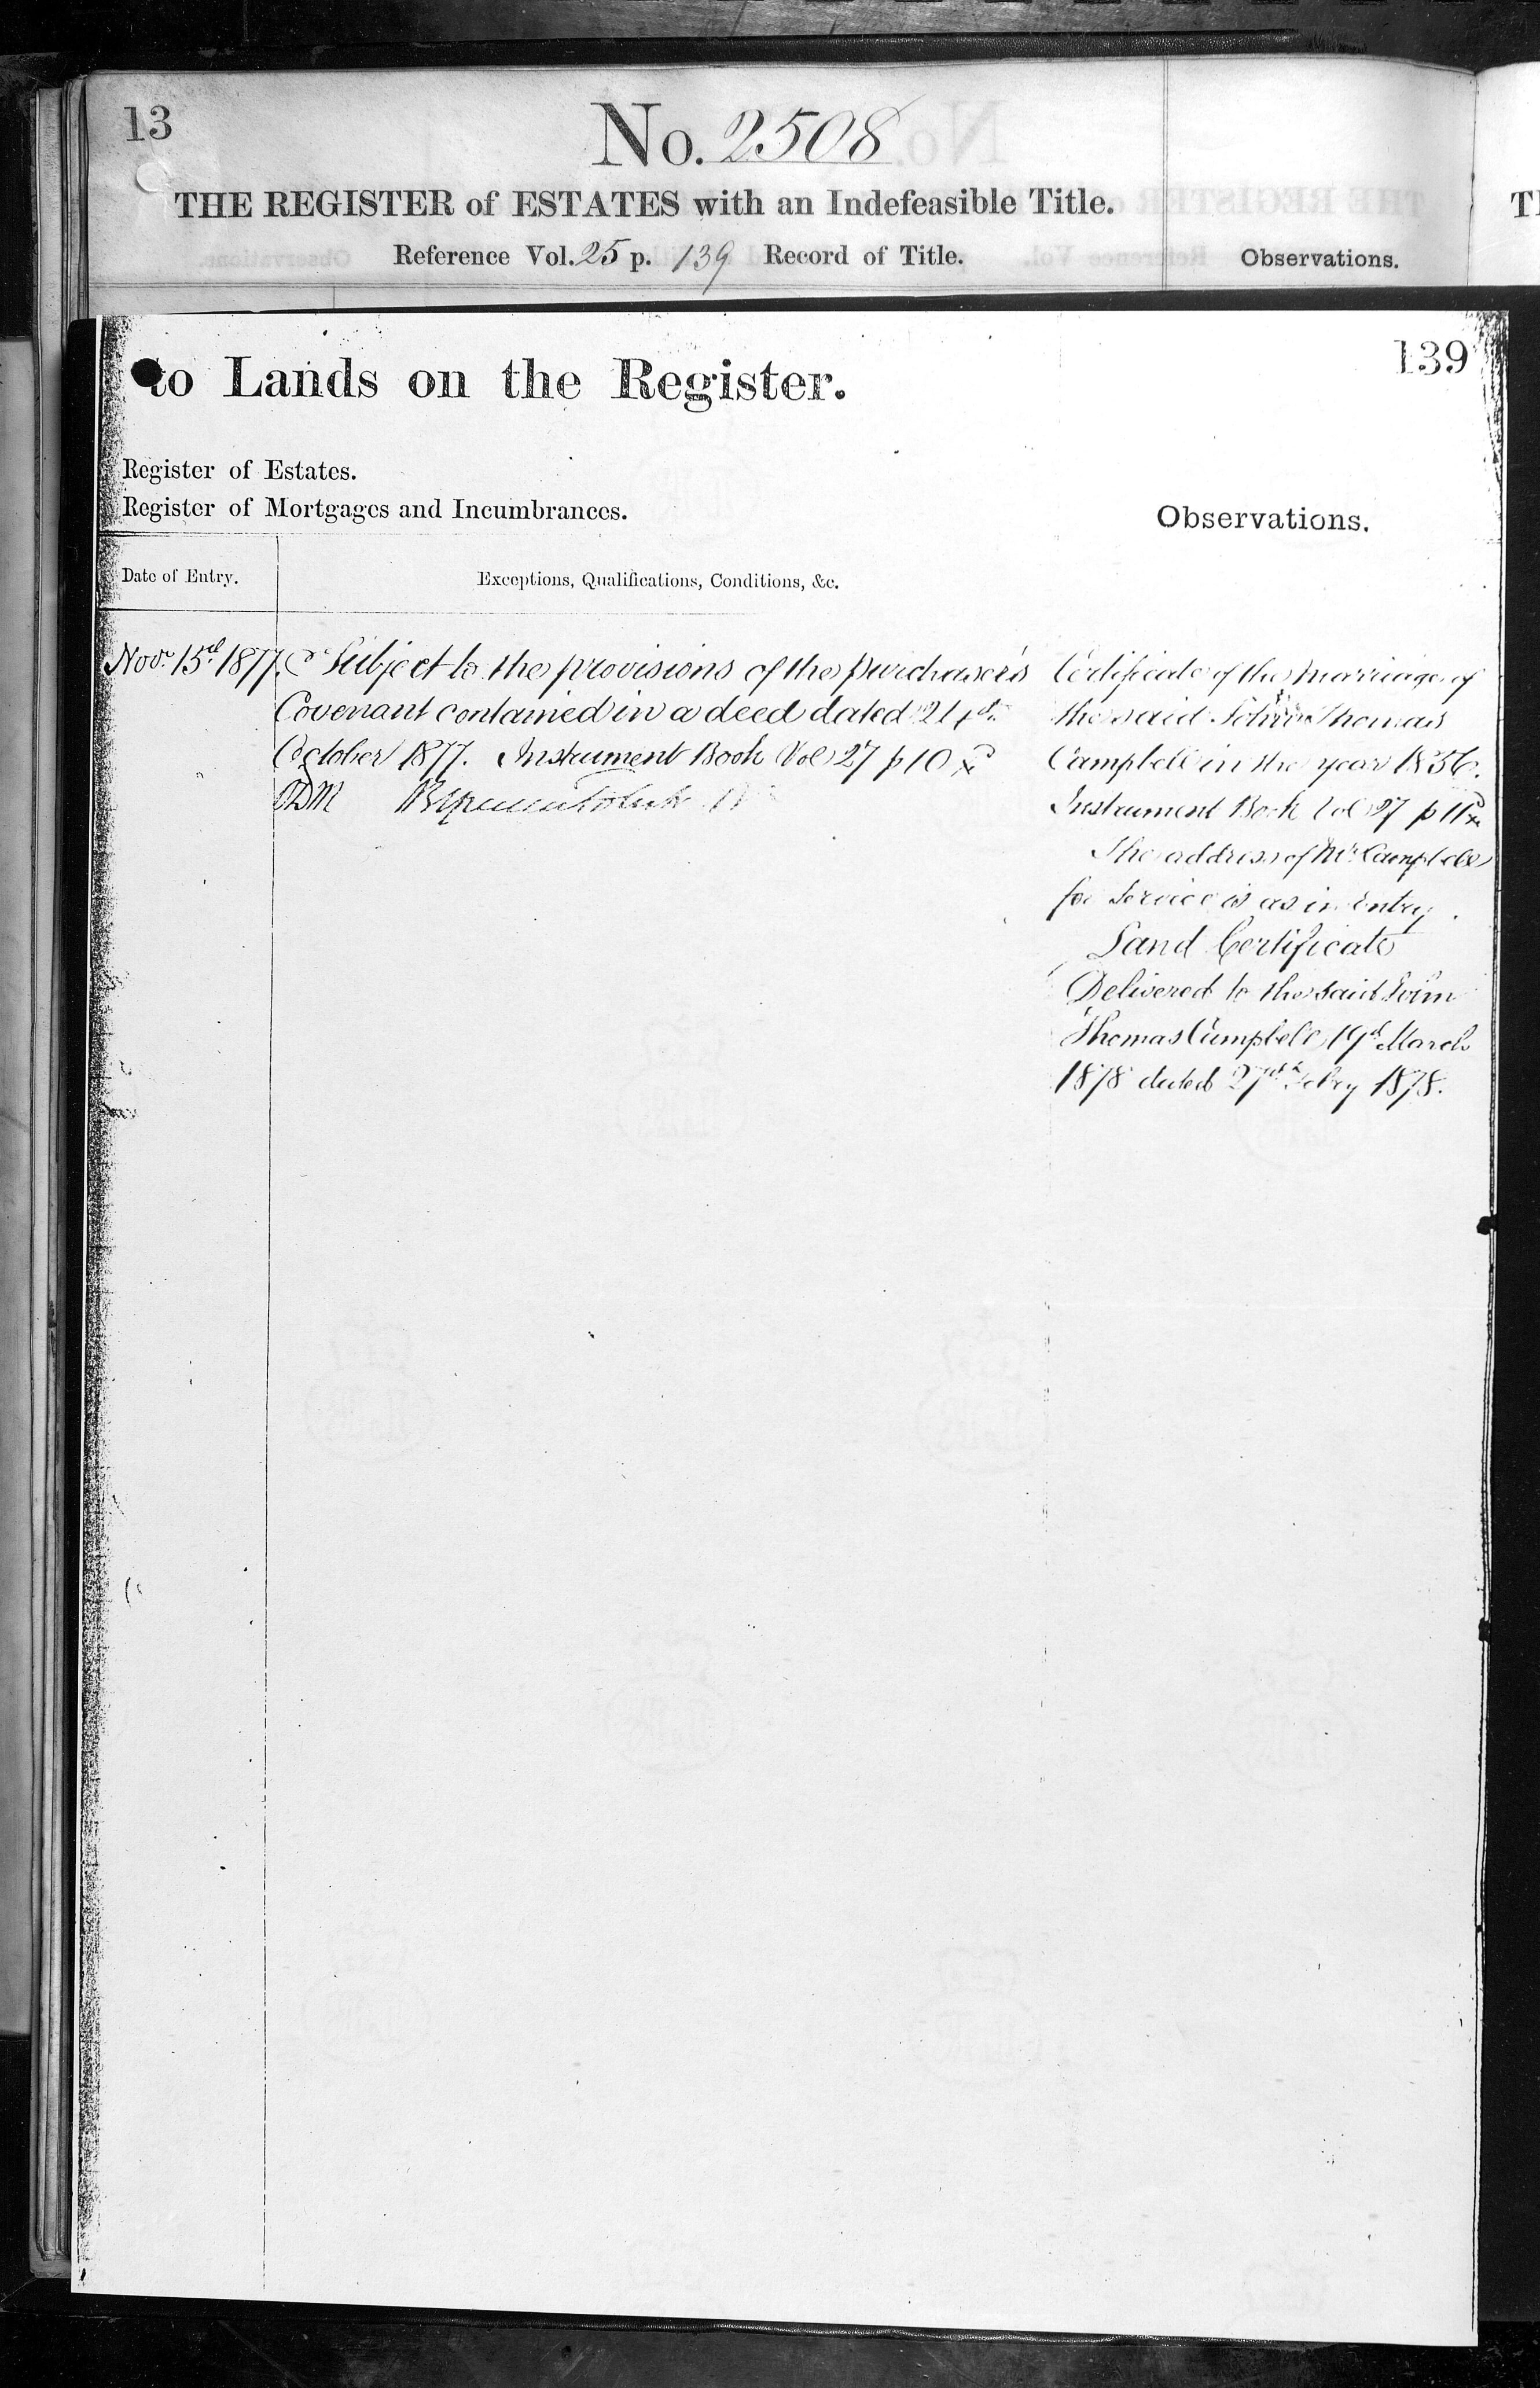 13
No. 2508
THE REGISTER of ESTATES with an Indefeasible Title.
Reference Vol. 25 p. 139 Record of Title.
Observations.
139
to Lands on the Register.
Register of Estates.
Register of Mortgages and Incumbrances.
Observations.
Date of Entry.
Exceptions, Qualifications, Conditions, &c.
Nov. 15th 1877.
Subject to the provisions of the purchaser's
Covenant contained in a deed dated
October 1877. Instrument Book Vol 27 p 10
Certificate of the marriage of
the said John Thomas
Campbell in the year 1856.
Instrument Book Vol 27 p 11
The address of Mr Campbell
for Service is as in Entry
Land Certificate
Delivered to the said John
Thomas Campbell 19th March
1878 dated 27th Febry 1878.